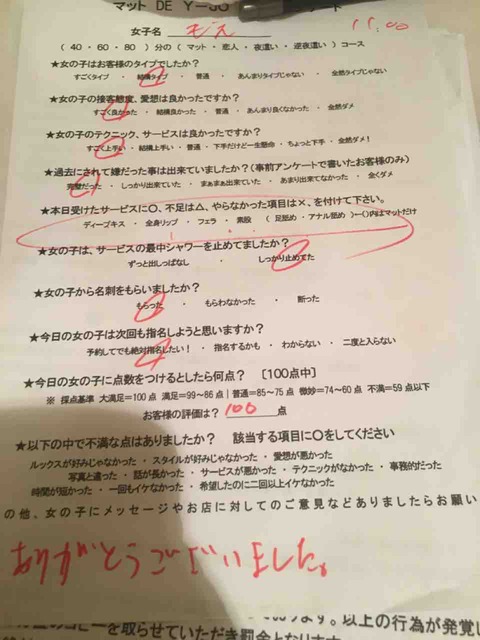 マット DE Y-JO
11.00
女子名
( 40・60・80 ) 分の ( マット ・ 恋人 ・ 夜這い ・ 逆夜這い ) コース
★女の子はお客様のタイプでしたか?
すごくタイプ ・ 結構タイプ ・ 普通 ・ あんまりタイプじゃない ・ 全然タイプじゃない
★女の子の接客態度、愛想は良かったですか?
すごく良かった ・ 結構良かった ・ 普通 ・ あんまり良くなかった ・ 全然ダメ
★女の子のテクニック、サービスは良かったですか?
すごく上手い ・ 結構上手い ・ 普通 ・ 下手だけど一生懸命 ・ ちょっと下手 ・ 全然ダメ!
★過去にされて嫌だった事は出来ていましたか?(事前アンケートで書いたお客様のみ)
完璧だった ・ しっかり出来ていた ・ まぁまぁ出来ていた ・ あまり出来てなかった ・ 全くダメ
★本日受けたサービスに○、不足は△、やらなかった項目は×、を付けて下さい。
ディープキス ・ 全身リップ ・ フェラ ・ 素股 ( 足舐め ・ アナル舐め )←()内はマットだけ
★女の子は、サービスの最中シャワーを止めてましたか?
ずっと出しっぱなし ・ しっかり止めてた
★女の子から名刺をもらいましたか?
もらった ・ もらわなかった ・ 断った
★今日の女の子は次回も指名しようと思いますか?
予約してでも絶対指名したい! ・ 指名するかも ・ わからない ・ 二度と入らない
★今日の女の子に点数をつけるとしたら何点? [100点中]
※ 採点基準 大満足=100点 満足=99~86点 | 普通=85~75点 微妙=74~60点 不満=59点以下
お客様の評価は? 100 点
★以下の中で不満な点はありましたか? 該当する項目に○をしてください
ルックスが好みじゃなかった ・ スタイルが好みじゃなかった ・ 愛想が悪かった
写真と違った ・ 話が長かった ・ サービスが悪かった ・ テクニックがなかった ・ 事務的だった
時間が短かった ・ 一回もイケなかった ・ 希望したのに二回以上イケなかった
の他、女の子にメッセージやお店に対してのご意見などありましたらお願い
ありがとうございました。
ております。以上の行為が発覚し
のコピーを取らせていただき罰金となります